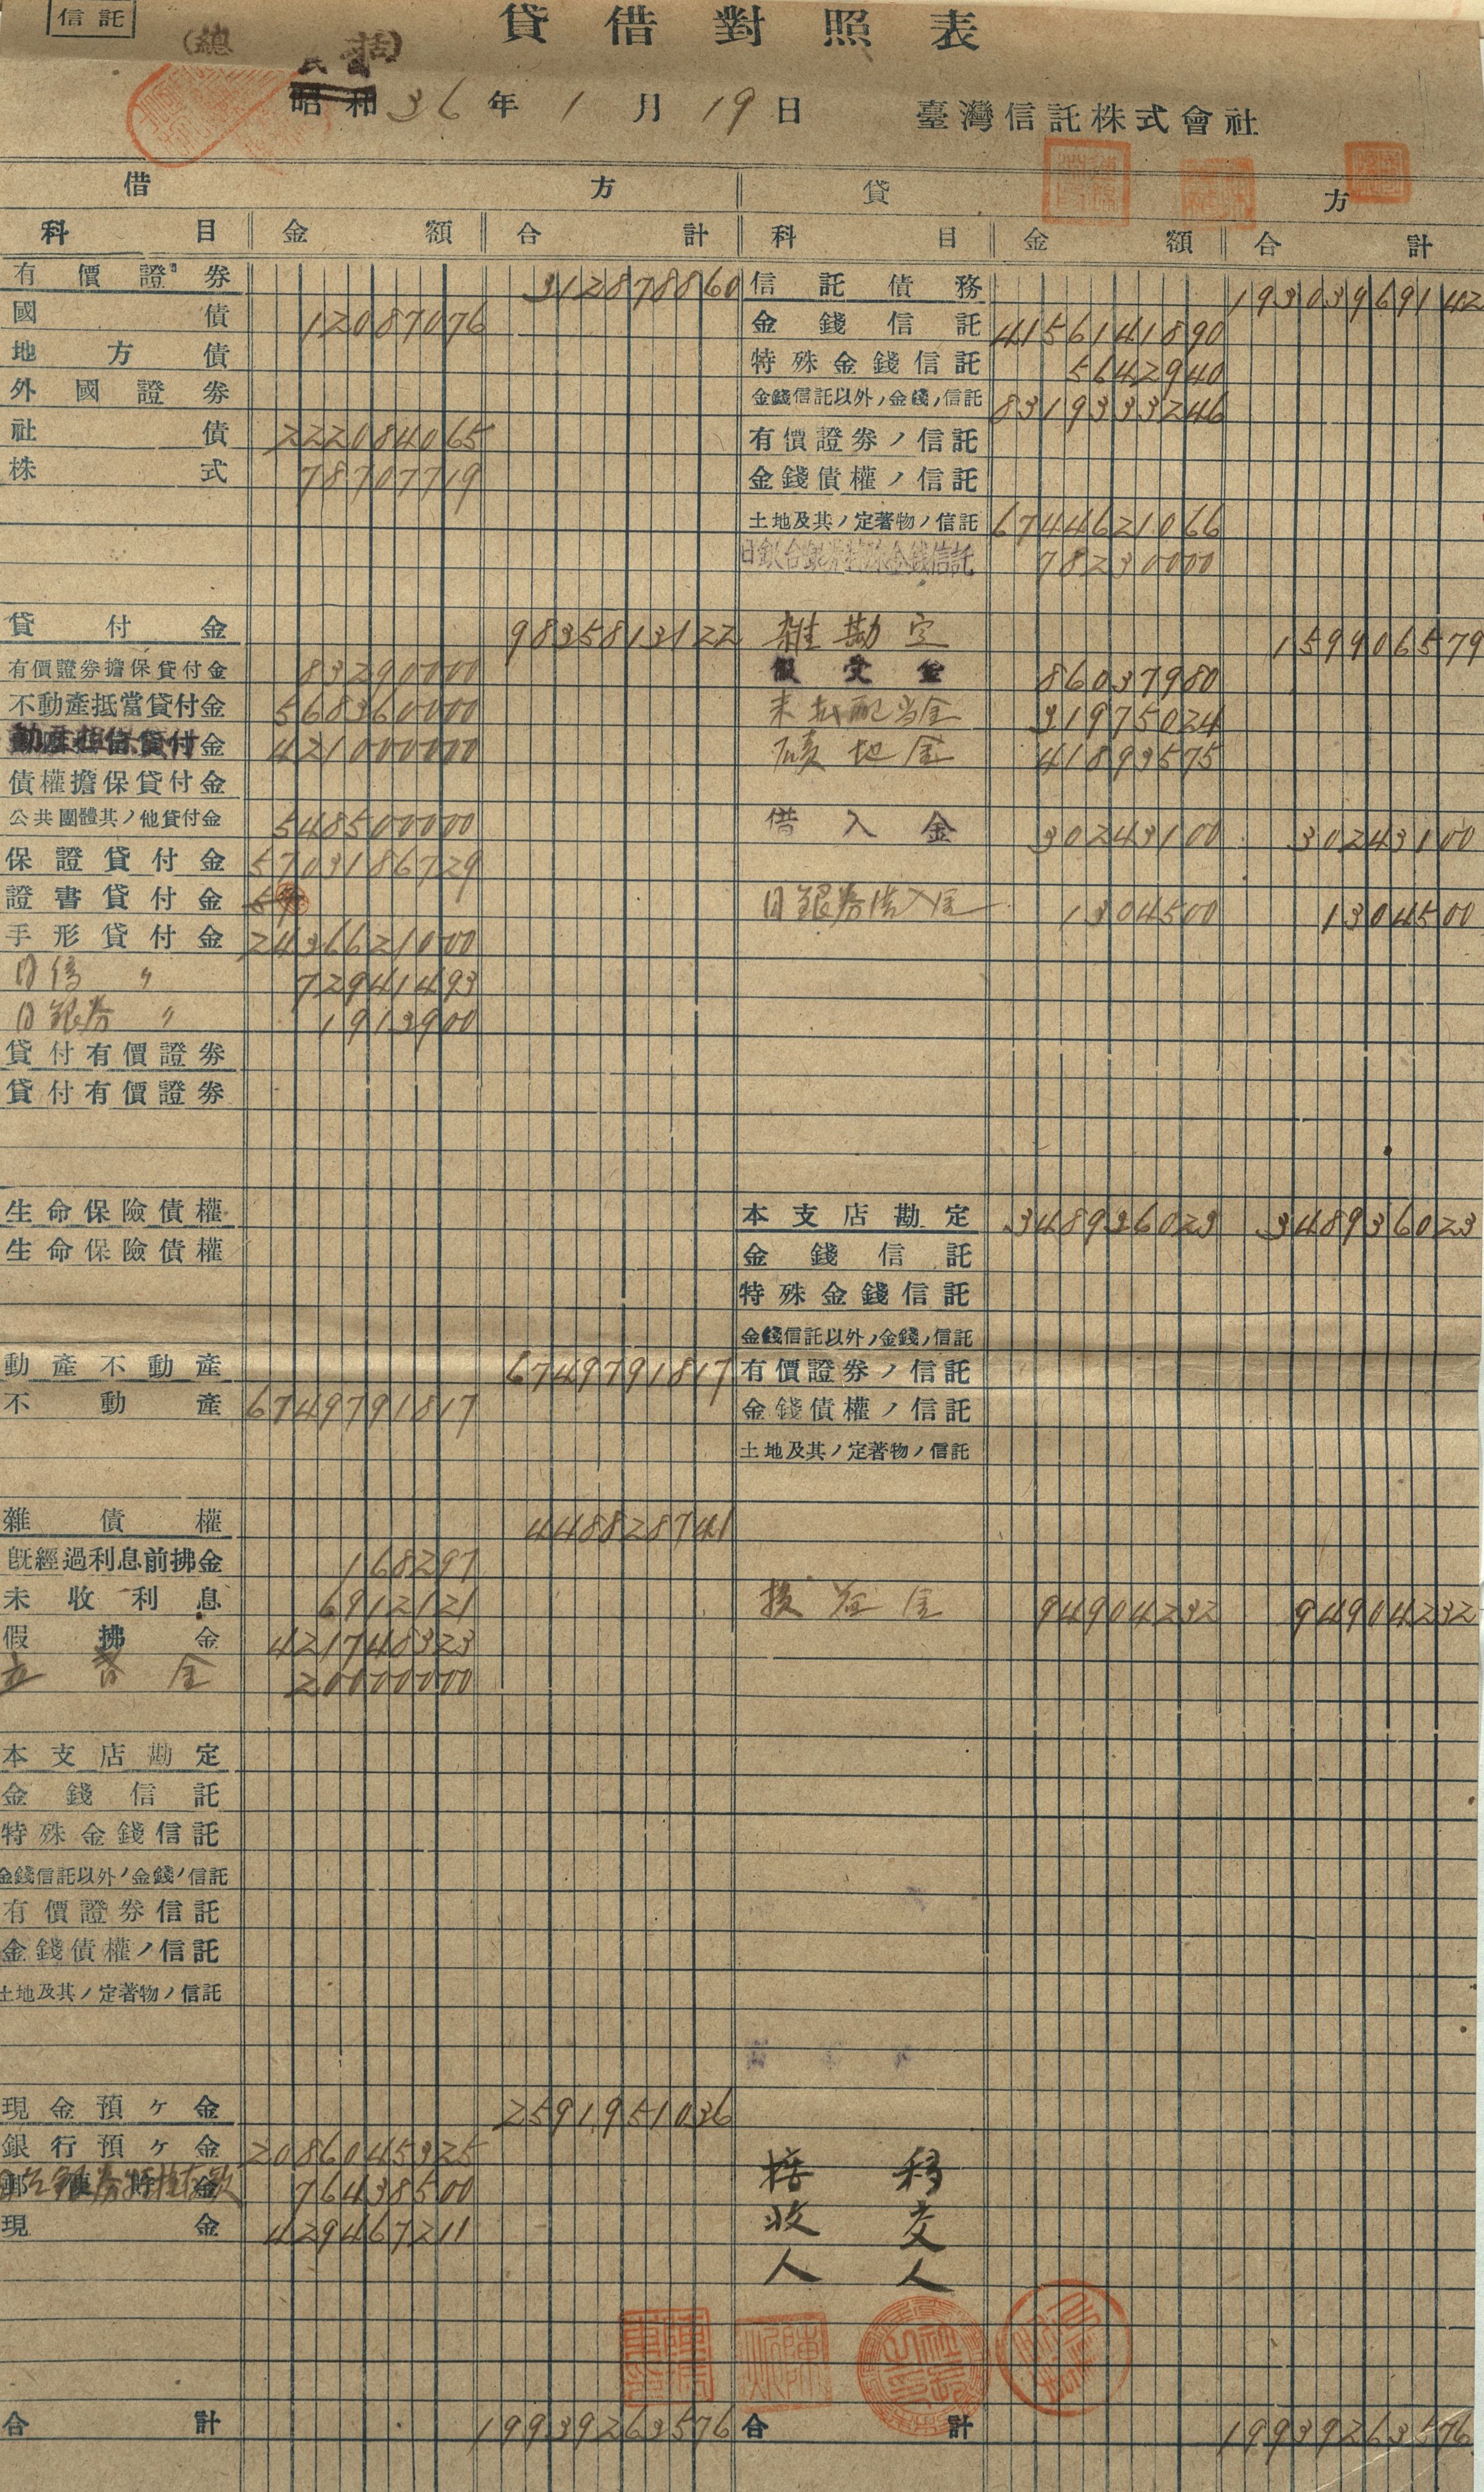 信託
貸借對照表
(總括)
昭和36年1月19日 臺灣信託株式會社
借方 貸方
科目 金額 合計 科目 金額 合計
有價證券 312878860 信託債務 19303969142
國債 12087076 金錢信託 4156141890
地方債 特殊金錢信託 5642940
外國證券 金錢信託以外ノ金錢ノ信託 8319333246
社債 222084065 有價證券ノ信託
株式 78707719 金錢債權ノ信託
土地及其ノ定著物ノ信託 6744621066
金錢信託 78230000
貸付金 9835813122 雜勘定 159906579
有價證券擔保貸付金 83290000 假受金 86037980
不動產抵當貸付金 568360000 未払配当金 31975024
貸付金 421000000 金 41893575
債權擔保貸付金
公共團體其ノ他貸付金 548500000 借入金 30243100 30243100
保證貸付金 5703186729
證書貸付金 日銀券借入金 1304500 1304500
手形貸付金 2436621000
日信 〃 72941493
日銀券 〃 1913900
貸付有價證券
貸付有價證券
生命保險債權 本支店勘定 348936023 348936023
生命保險債權 金錢信託
特殊金錢信託
金錢信託以外ノ金錢ノ信託
動產不動產 6749791817 有價證券ノ信託
不動產 6749791817 金錢債權ノ信託
土地及其ノ定著物ノ信託
雜債權 448828741
既經過利息前拂金 168297
未收利息 6912121 金 94904232 94904232
假拂金 421748323
立替金 20000000
本支店勘定
金錢信託
特殊金錢信託
金錢信託以外ノ金錢ノ信託
有價證券信託
金錢債權ノ信託
土地及其ノ定著物ノ信託
現金預ケ金 2591951036
銀行預ケ金 2086045325
76438500
現金 429467211
移交人
接收人
合計 19939263576 合計 19939263576